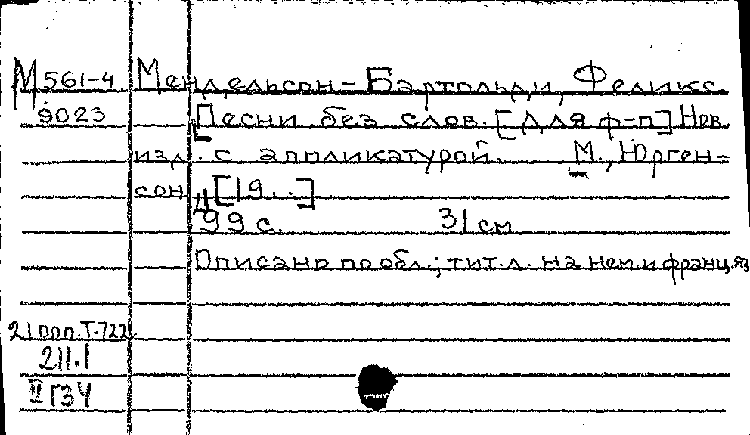 М561-4 Мендельсон-Бартольди, Феликс.
9023 Песни без слов. [Для ф-п] Нов.
изд. с аппликатурой. М., Юрген-
сон, [19..]
99 с. 31 см
Описано по обл.; тит. л. на нем. и франц. яз.
211.1
II Г34